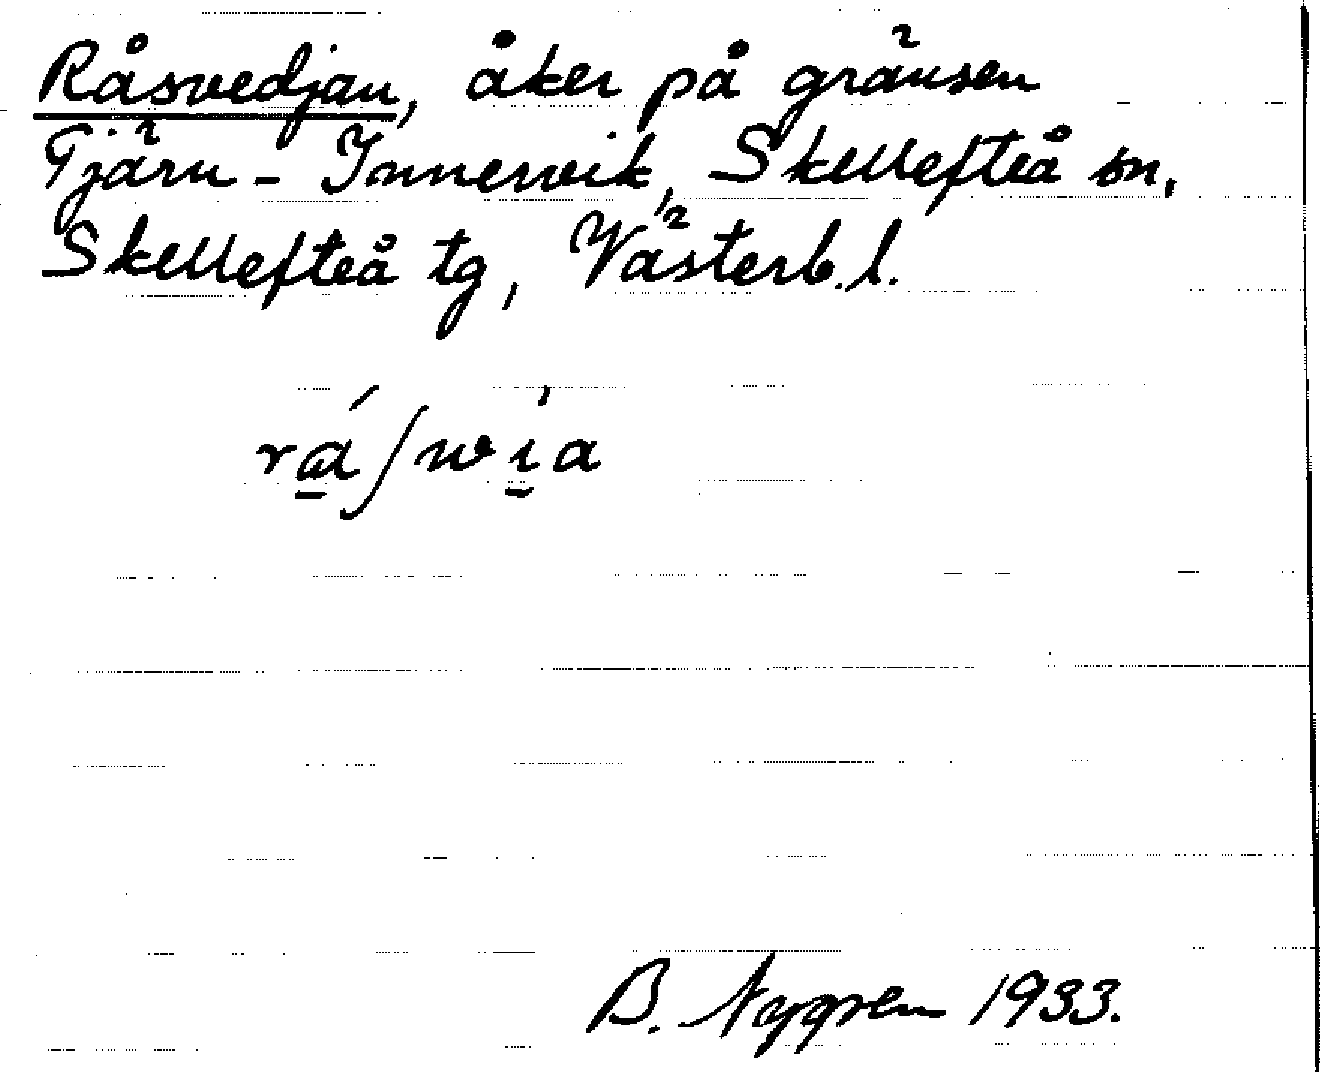 Råsvedjan, åker på gränsen
Tjärn - Innervik, Skellefteå sn,
Skellefteå tg, Västerb.l.
B. Nygren 1933.